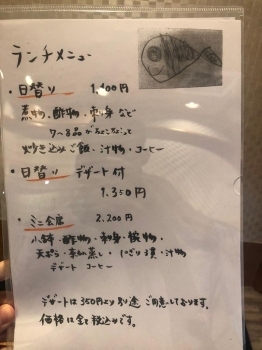 ランチメニュー
・日替り 1,100円
煮物、酢物、刺身など
7〜8品がちょこちょこっと
炊き込みご飯・汁物・コーヒー
・日替り デザート付
1,350円
・ミニ会席 2,200円
小鉢・酢物・刺身・焼物
天ぷら・茶わん蒸し・にぎり3貫・汁物
デザート コーヒー
デザートは350円より別途ご用意しております。
価格は全て税込みです。